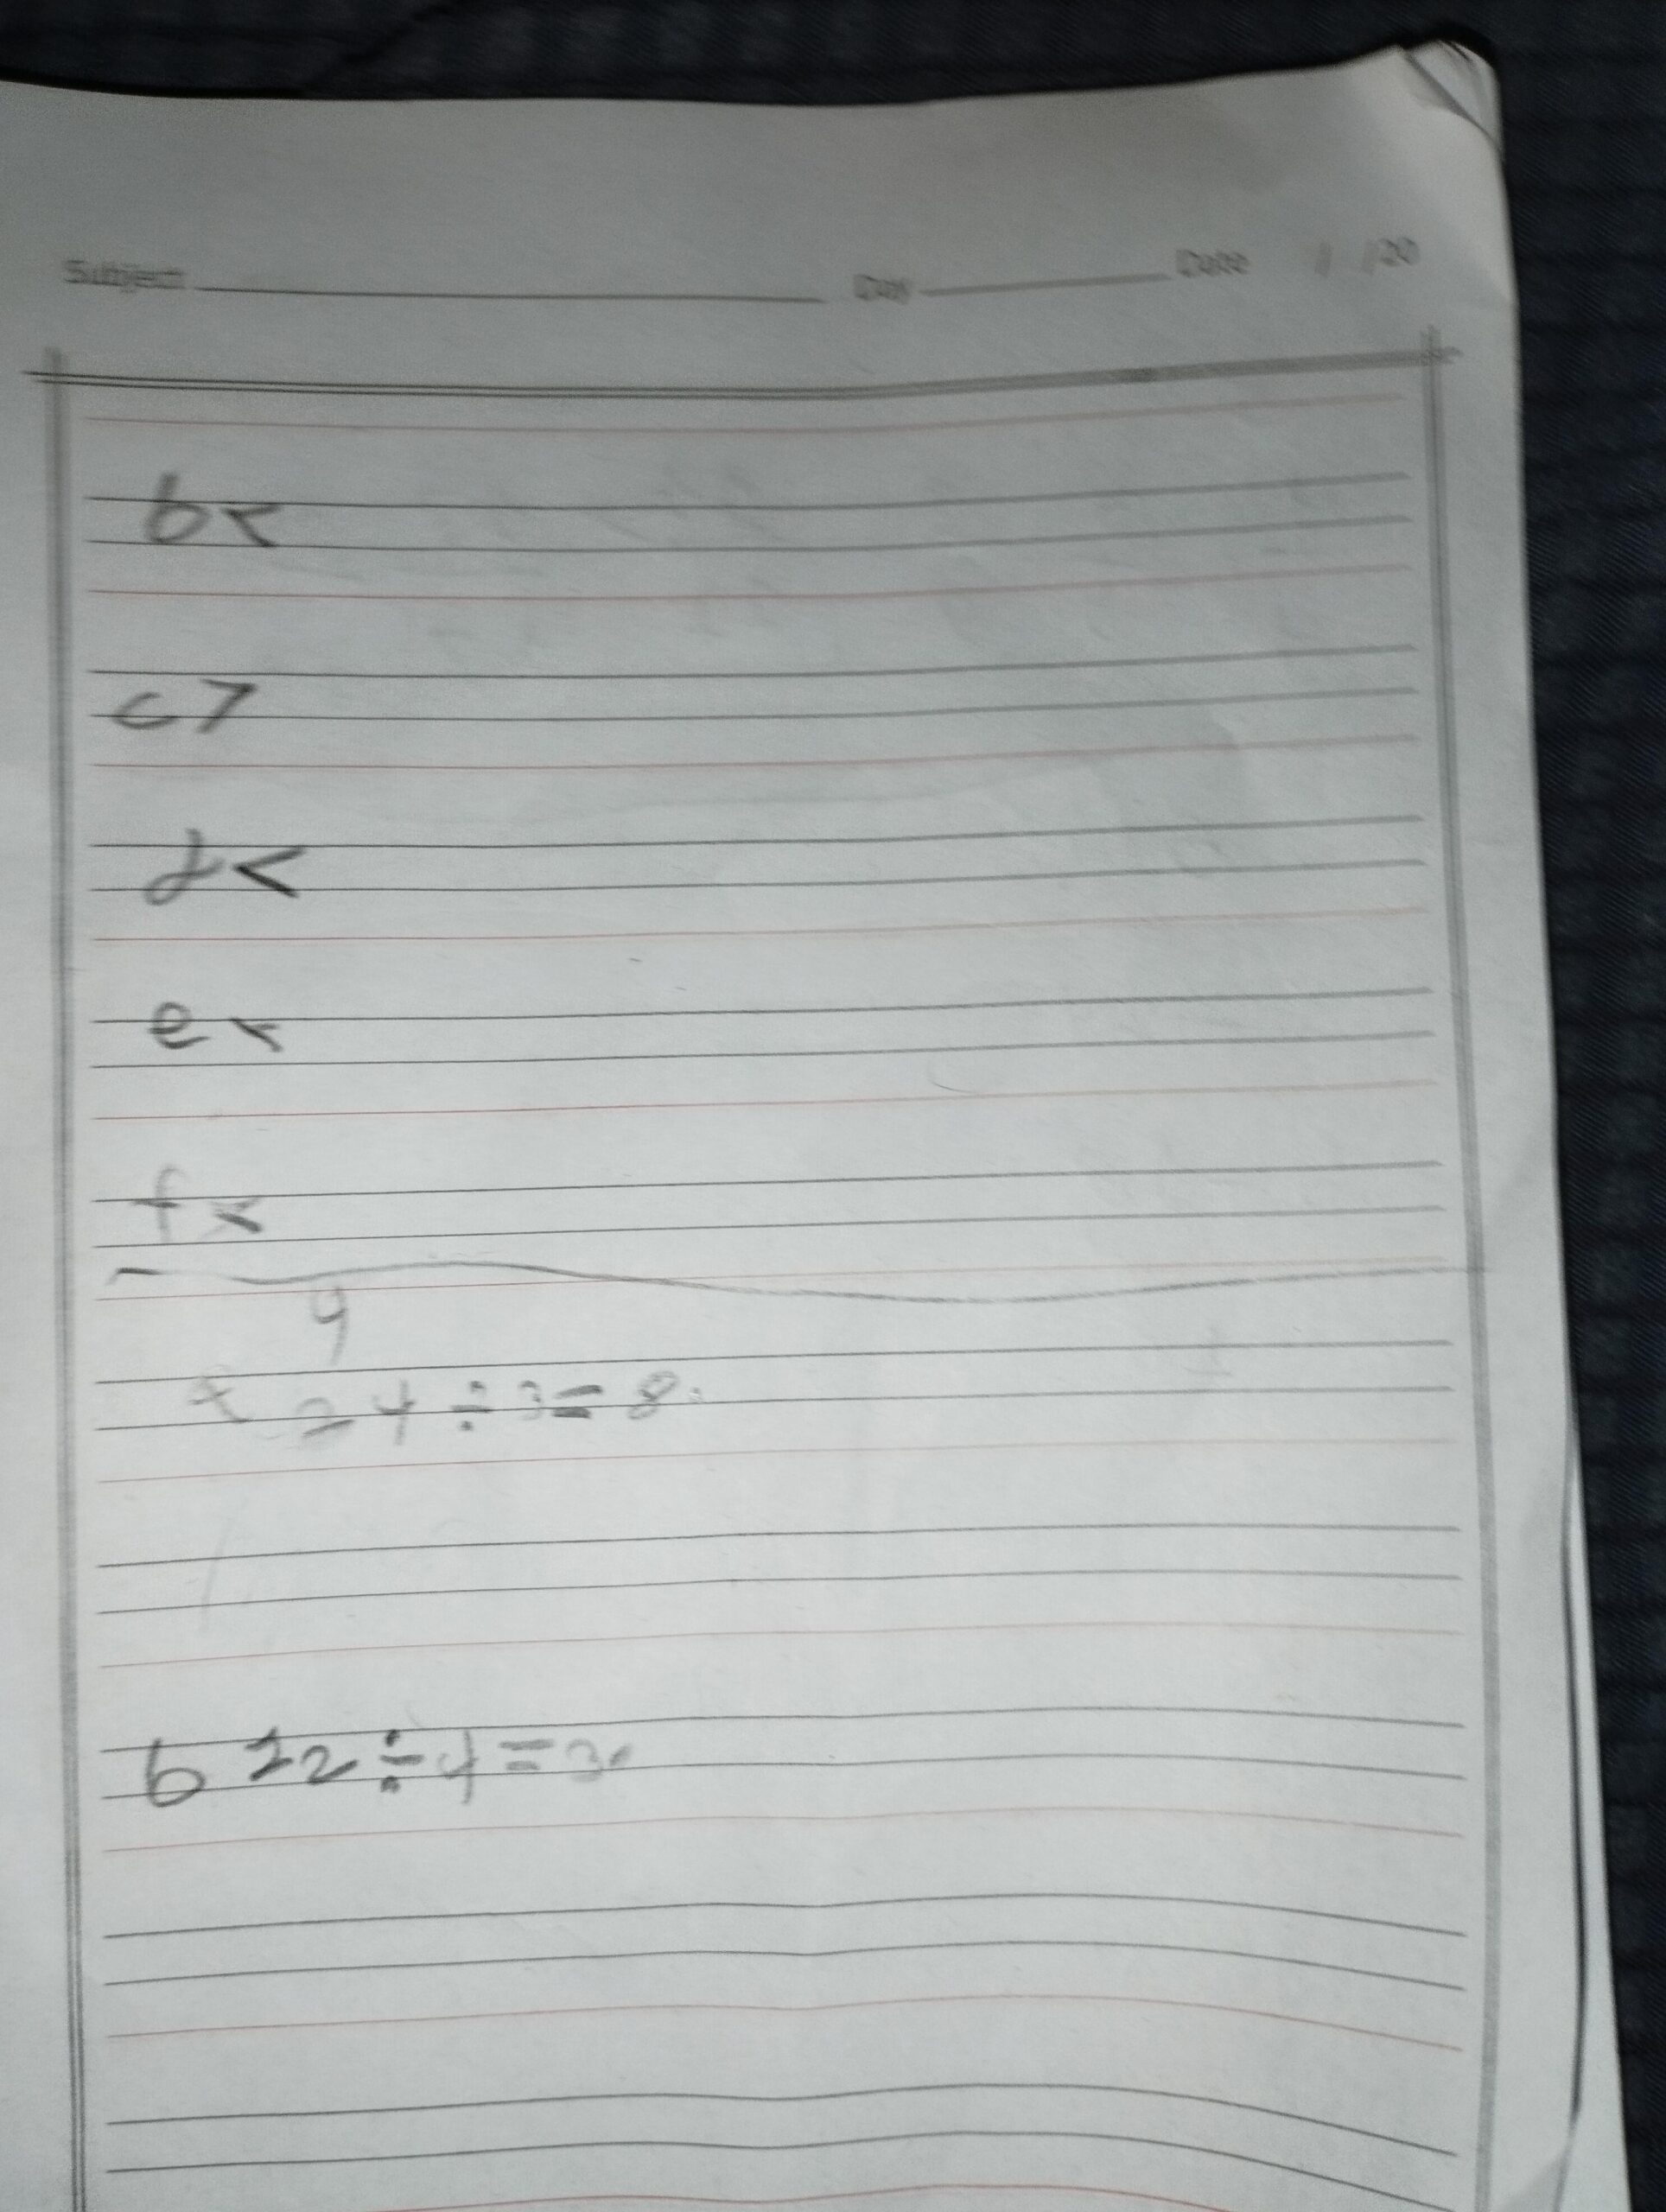 Subject Day Date / /20
b <
c >
d <
e <
f <
4
24 ÷ 3 = 8
b 12 ÷ 4 = 3